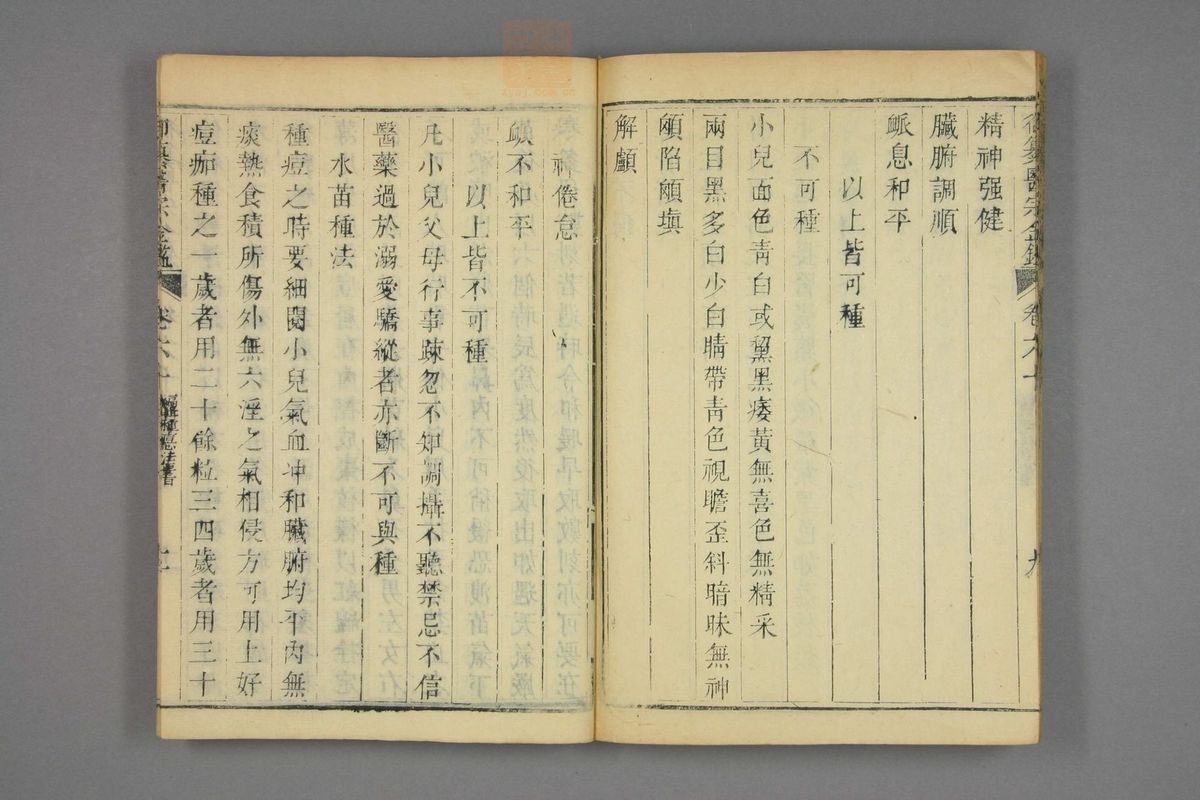 精神强健
臟腑調順
脈息和平
以上皆可種
不可種
小兒面色青白或黧黑痿黃無喜色無精采
兩目黑多白少白睛帶青色視瞻歪斜暗昧無神
顖陷顖塡
解顱
卷六十
九
神倦怠
不和平
以上皆不可種
凡小兒父母行事疎忽不知調攝不聽禁忌不信
醫藥過於溺愛驕縱者亦斷不可與種
水苗種法
種痘之時要細閱小兒氣血冲和臟腑均平內無
痰熱食積所傷外無六淫之氣相侵方可用上好
痘痂種之一歲者用二十餘粒三四歲者用三十
卷六十